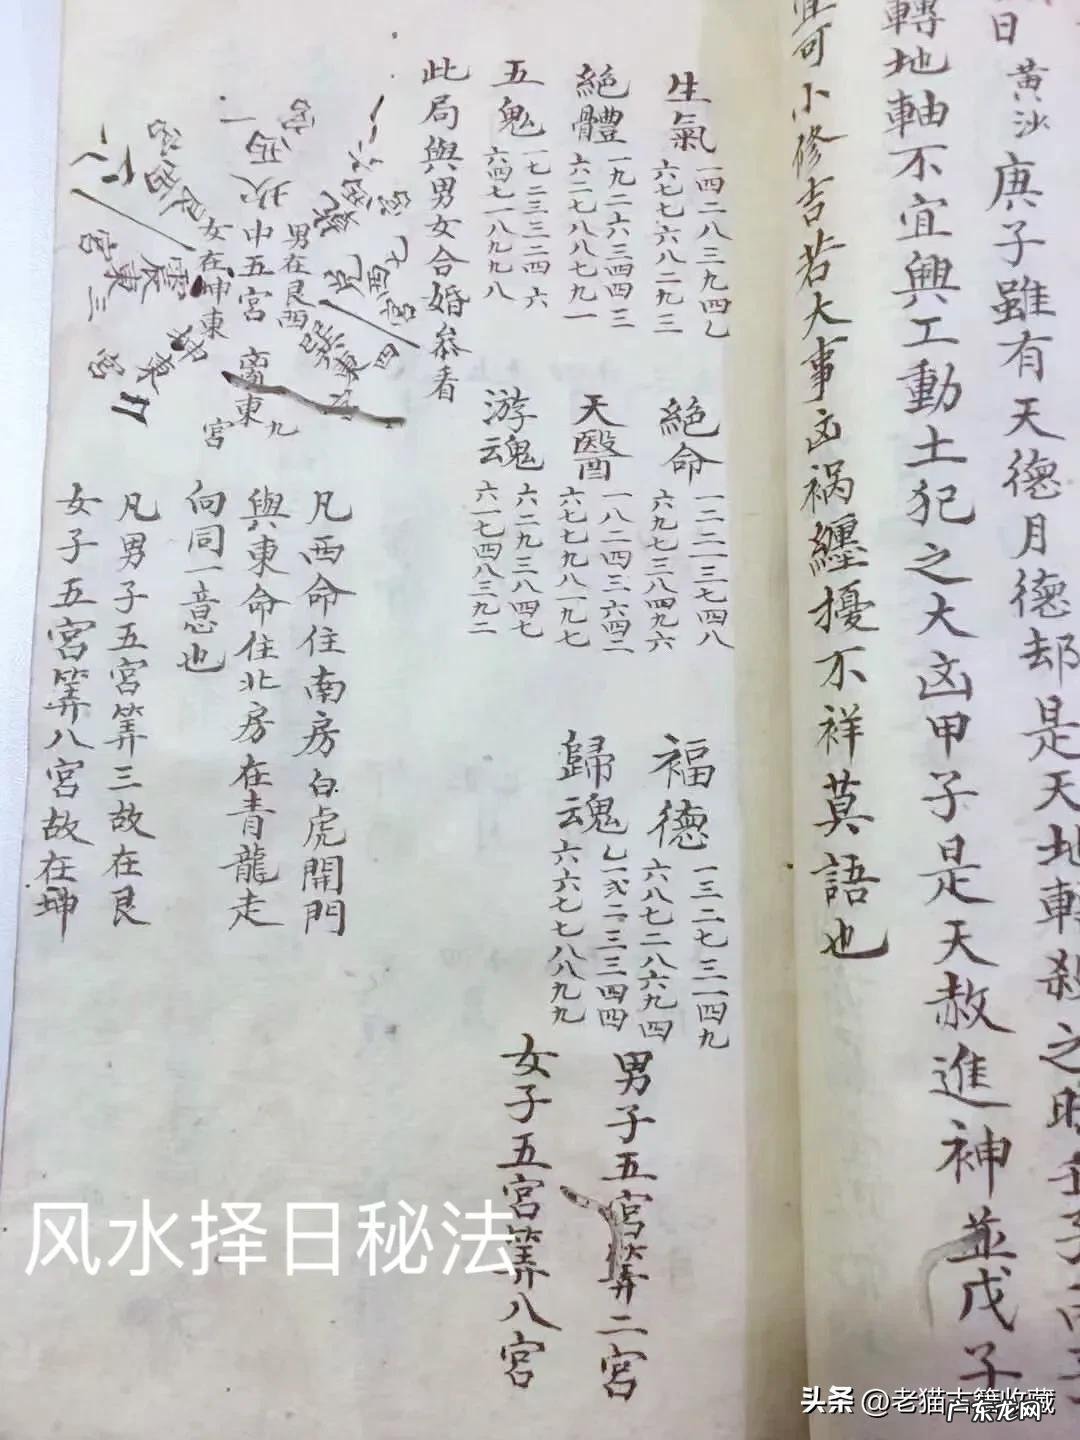 日 黄沙 庚子雖有天德月德却是天地轉殺之時壬子
轉地軸不宜興工動土犯之大凶甲子是天赦進神並戊子
宜可小修吉若大事凶禍纏擾不祥莫語也
生氣 一四二八三九四乙
六七七六八二九三
絕體 一九二六三四四三
六二七八八七九一
五鬼 一七二三三二四六
六四七一八九九八
此局與男女合婚叅看
絕命 一二二一三七四八
六九七三八四九六
天醫 一八二四三六四二
六七七九八一九七
游魂 六二九三八四七
六一七四八三九二
福德 一三二七三一四九
六八七二八六九四
歸魂 乙一弍二三三四四
六六七七八八九九
男子五宮筭二宮
女子五宮筭八宮
男在艮西
中五宮
女在坤東
坎
一
離東九
宮
震東三
宮
兌西七
宮
巽東四
凡西命住南房白虎開門
與東命住北房在青龍走
向同一意也
凡男子五宮筭三故在艮
女子五宮筭八宮故在坤
风水择日秘法
头条 @老猫古籍收藏
广东龙网